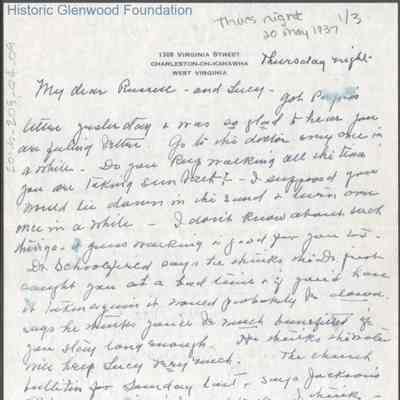 Historic Glenwood Foundation
Thurs night
20 May 1937 1/3
1308 VIRGINIA STREET
CHARLESTON-ON-KANAWHA
WEST VIRGINIA
Thursday night-
My dear Russell - and Lucy - Got
letter yesterday & was so glad to hear you
are feeling better. Go to the doctor every once in
a while. Do you keep walking all the time
you are taking sun bath? - I supposed you
would lie down in the sand & turn over
once in a while - I don't know about such
things. I guess walking is good for you too
Dr. Schoolfield says he thinks this Dr. first
caught you at a bad time & if you'd have
it taken again it would probably be down.
says he thinks you'll be much benefited if
you stay long enough. He thinks the water
will help Lucy very much. The church
bulletin for Sunday last & says Jackson's